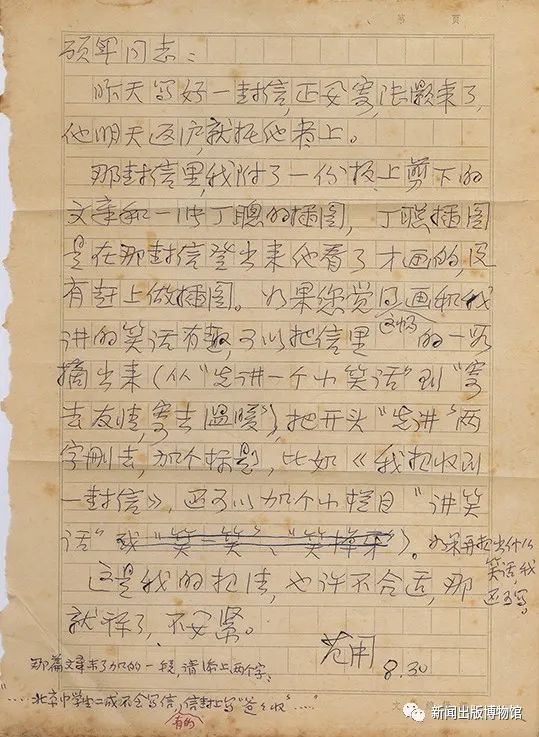 第 页
硕军同志：
昨天写好一封信，正要寄，陆灏来了，
他明天返沪，就托他带上。
那封信里，我附了一份报上剪下的
文章和一张丁聪的插图，丁聪插图
是在那封信登出来他看了才画的，没
有赶上做插图。如果您觉得这幅画和我
讲的笑话有趣，可以把信里的一段
摘出来（从“先讲一个小笑话”到“寄
去友情，寄去温暖”），把开头“先讲”两
字删去，加个标题，比如《我想收到
一封信》，还可以加个小栏目“讲笑
话”或“笑一笑”、）。如果再想出什么
笑话，我
还可写。
这是我的想法，也许不合适，那
就算了，不要紧。
范用
8.30
那篇文章末了加的一段，请添上两个字：
“……北京中学生二成不会写信，信封上写“爸爸收”……”
有的
新闻出版博物馆